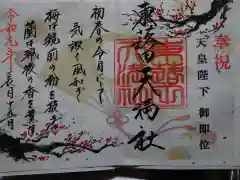 奉祝
天皇陛下御即位
東蕗田天満社
初春の令月にして
気淑く風和ぎ
梅は鏡前の粉を披き
蘭は珮後の香を薫らす
令和元年